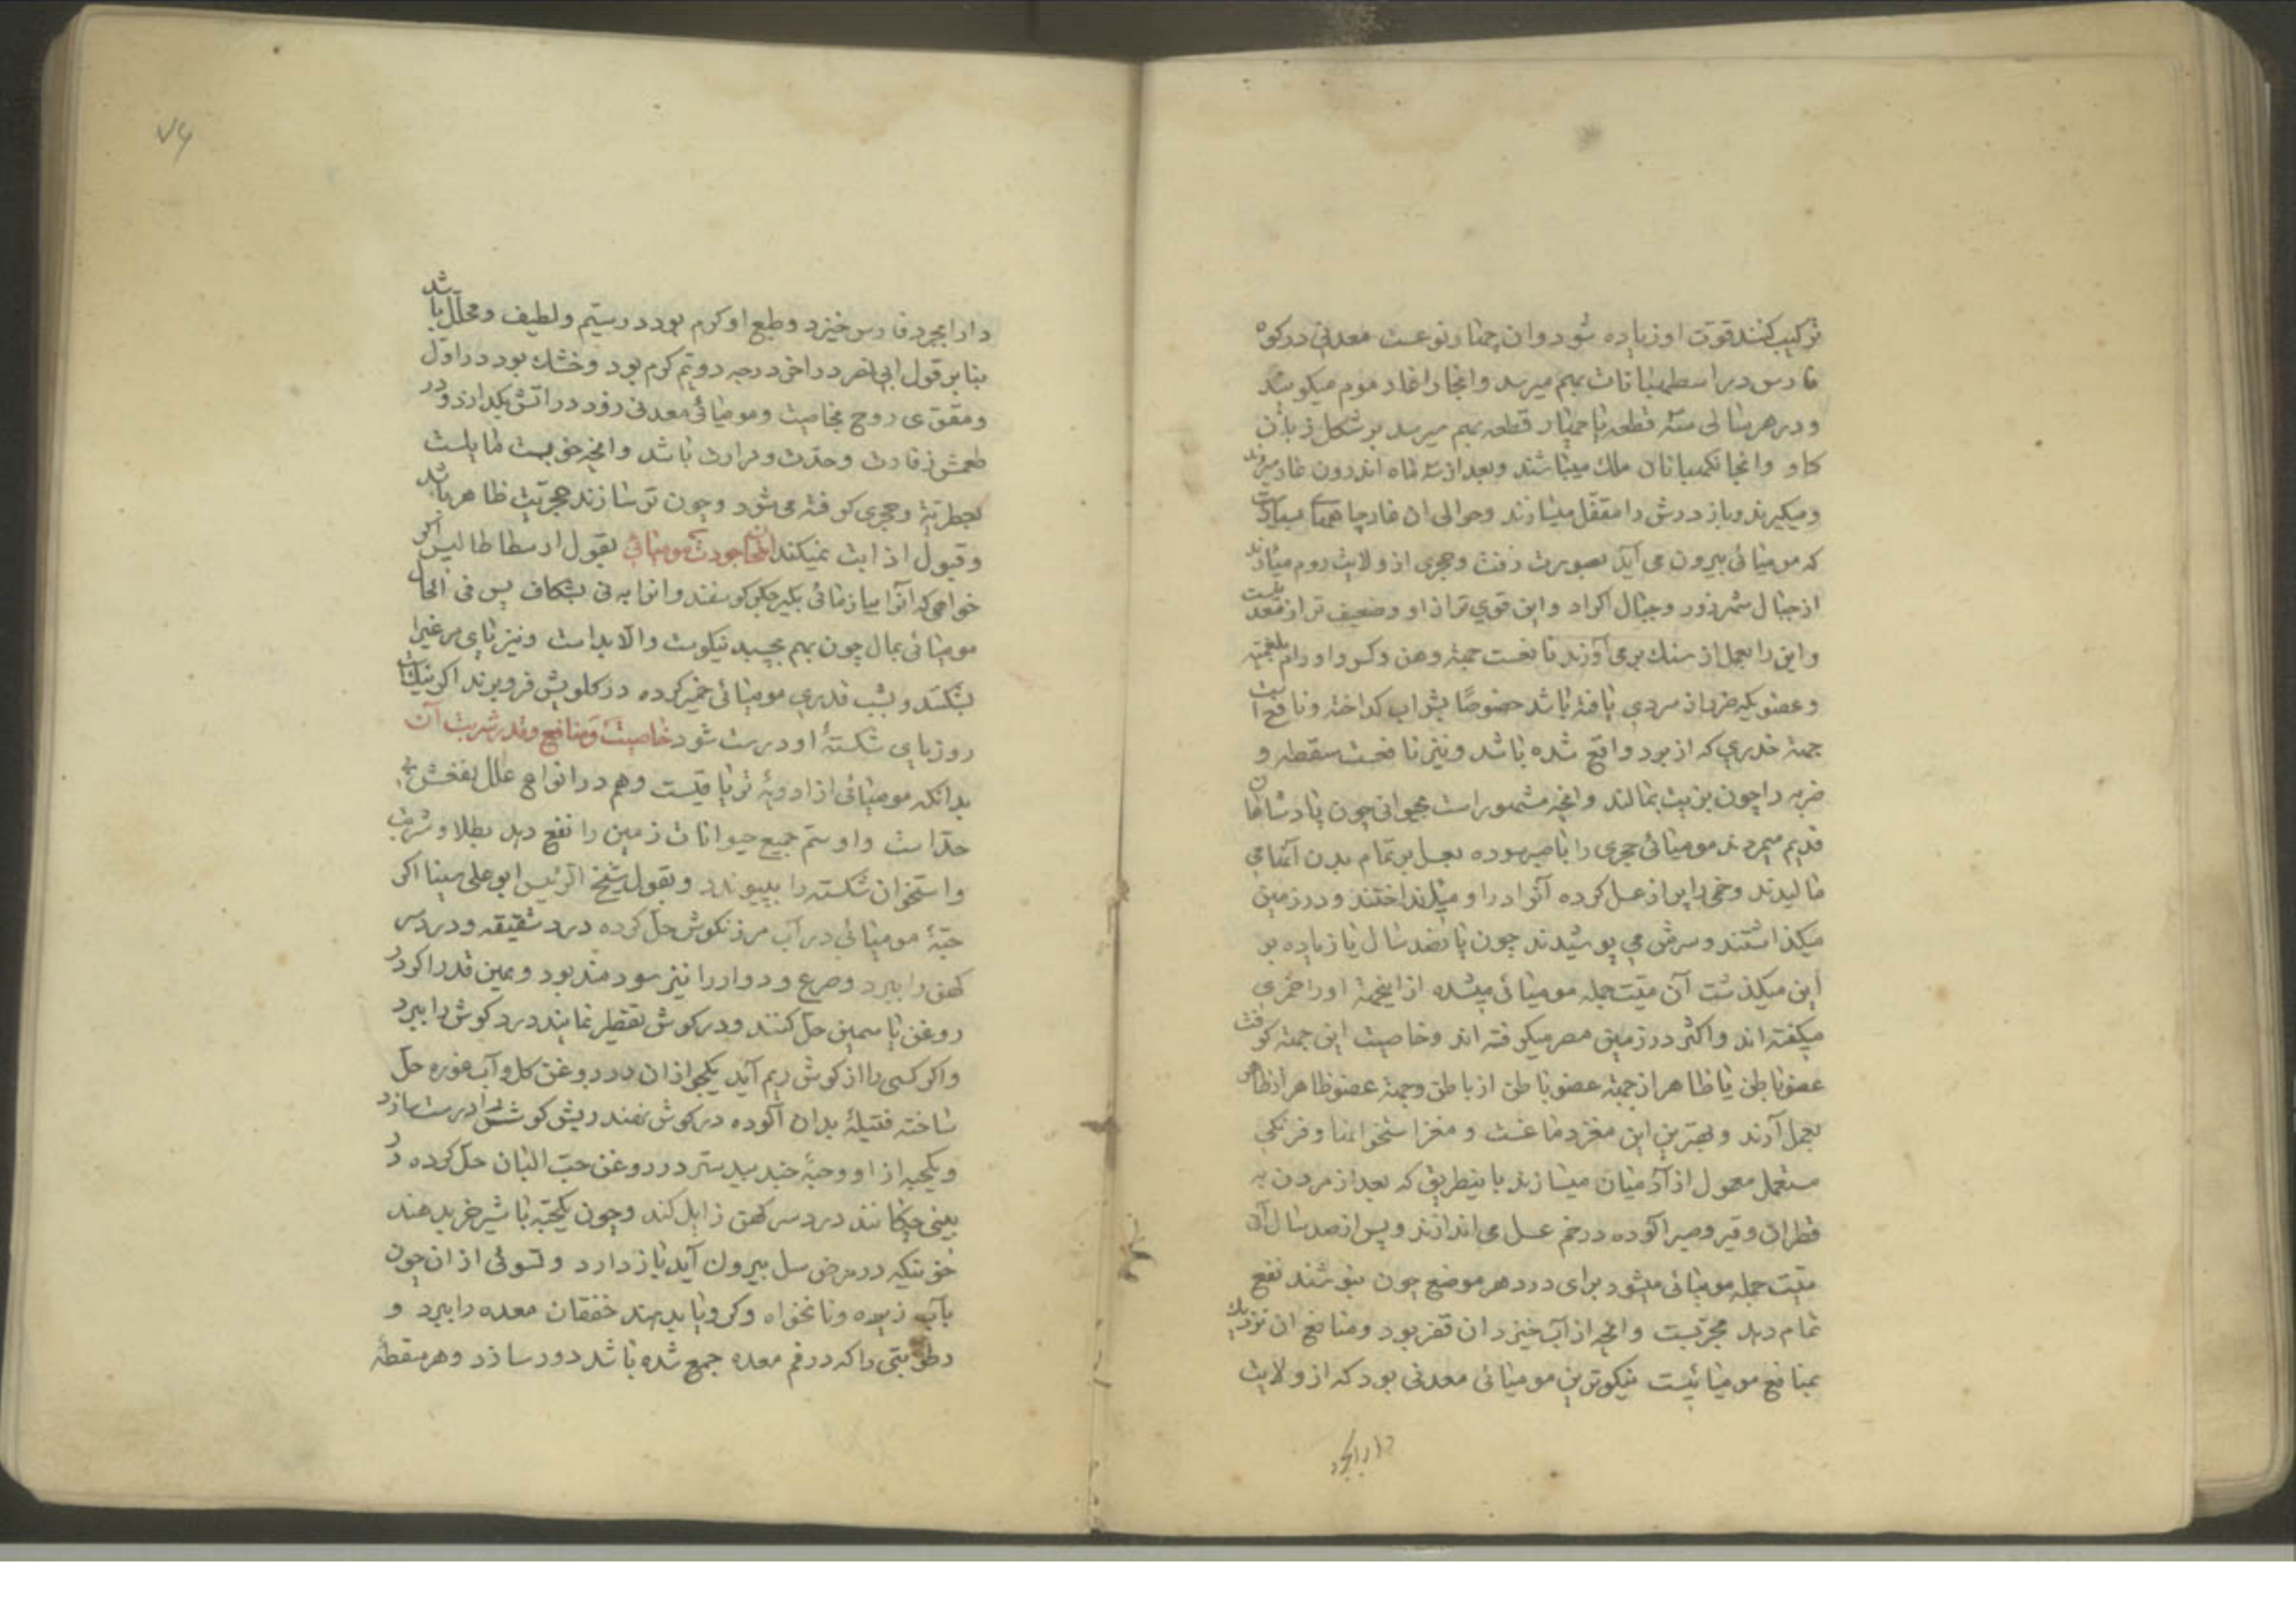 ترکیب کنند قوت او زیاده شود و ان چهار نوعست معدنی در کوه
فارس در اسطهبانات بهم میرسد و انجا را غار موم میکویند
و در هر سالی سه قطعه یا چهار قطعه بهم میرسد بر شکل زبان
کاو و انجا نکهبانان ملک میباشند و بعد از سه ماه اندرون غار میروند
و میکیرند و باز درش را مقفل میسازند و حوالی ان غار چاههای بسیارست
که مومیائی بیرون می آید بصورت زفت و حجری از ولایت روم میارند
از جبال شهرزور و جبال اکراد و این قوی تر از او و ضعیف تر از معدنیست
و این را بعمل از سنک برمی آورند نافعست جهة وهن و کسر و اورام بلغمیه
و عضویکه ضرر از سردی یافته باشد خصوصًا بشراب کداخته و نافع است
جهة خدری که از برد واقع شده باشد و نیز نافعست سقطه و
ضربه را چون بزیت بمالند و انچه مشهور است بحیوانی چون پادشاهان
قدیم میمردند مومیائی حجری را با صبر سوده بعسل بر تمام بدن آنها می
مالیدند و خمی را پر از عسل کرده آنرا در او میانداختند و در زمین
میکذاشتند و سرش می پوشیدند چون پانصد سال یا زیاده بر
این میکذشت آن میت جمله مومیائی میشده از اینجهة او را خمری
میکفته اند و اکثر در زمین مصر میکرفته اند و خاصیت این جهة کوفت
عضو باطن یا ظاهر از جهة عضو باطن از باطن و جهة عضو ظاهر از ظاهر
بعمل آرند و بهترین این مغز دماغست و مغز استخوانها و فرنکی
مستعمل معمول از آدمیان میسازند باینطریق که بعد از مردن به
قطران و قیر و صبر اکوده در خم عسل می اندازند و پس از صد سال آن
میت جمله مومیائی میشود برای درد هر موضع چون بنوشند نفع
تمام دهد مجربست و انچه از آب خیزد ان قفر بود و منافع ان نزدیک
بمنافع مومیائیست نیکوترین مومیائی معدنی بود که از ولایت
دارابجرد
۷۶
دارابجرد فارس خیزد و طبع او کرم بود در سیّم و لطیف و محلّل باشد
بنابر قول ابی در اخر درجه دویّم کرم بود و خشک بود در اوّل
و مقوّی روح بخاصیت و مومیائی معدنی زود در اتش بکدازد و در
طعمش زفارت و حدّت و مرارت باشد و انچه خوبست مایلست
بعطریة و حجری کوفته می شود و چون تر سازند حجریت ظاهر باشد
و قبول از ابت نمیکند امتحان جودت مومیائی بقول ارسطاطالیس اکر
خواهی که آنرا بیازمائی بکیر جکر کوسفند و انرا به نی بشکاف پس فی الحال
مومیائی بمال چون بهم بچسبد نیکوست و الّا بداست و نیز پای مرغیرا
بشکنند و بشب قدری مومیائی خمیر کرده در کلویش فرو برند اکر نیکست
روز پای شکستهٔ او درست شود خاصیت و منافع و قدر شربت آن
بدانکه مومیائی از ادویهٔ تریاقیست و هم در انواع علل نفعش بی
حدّاست و او سم جمیع حیوانات زمین را نفع دهد بطلا و شرب
و استخوان شکسته را بپیوندد و بقول شیخ الرئیس ابو علی سینا اکر
حبّهٔ مومیائی در آب مرزنکوش حل کرده درد شقیقه و درد سر
کهن را ببرد و صرع و دوار را نیز سودمند بود و همین قدر اکر در
روغن یاسمین حل کنند و در کوش تقطیر نمایند درد کوش را ببرد
و اکر کسی را از کوش ریم آید یکجو از ان در روغن کل و آب غوره حل
ساخته فتیلهٔ بدان آلوده در کوش نهند ریش کوشش را درست سازد
و یکحبه از او و حبّهٔ جندبیدستر در روغن حب البان حل کرده در
بینی چکانند درد سر کهن زایل کند و چون یکحبّه با شیر خر بدهند
خونیکه در مرض سل بیرون آید باز دارد و تسوئی از ان چون
بآب زیره و نانخواه و کرویا بدهند خفقان معده را ببرد و
رطوبتی را که در فم معده جمع شده باشد دور سازد و هر سقطهٔ